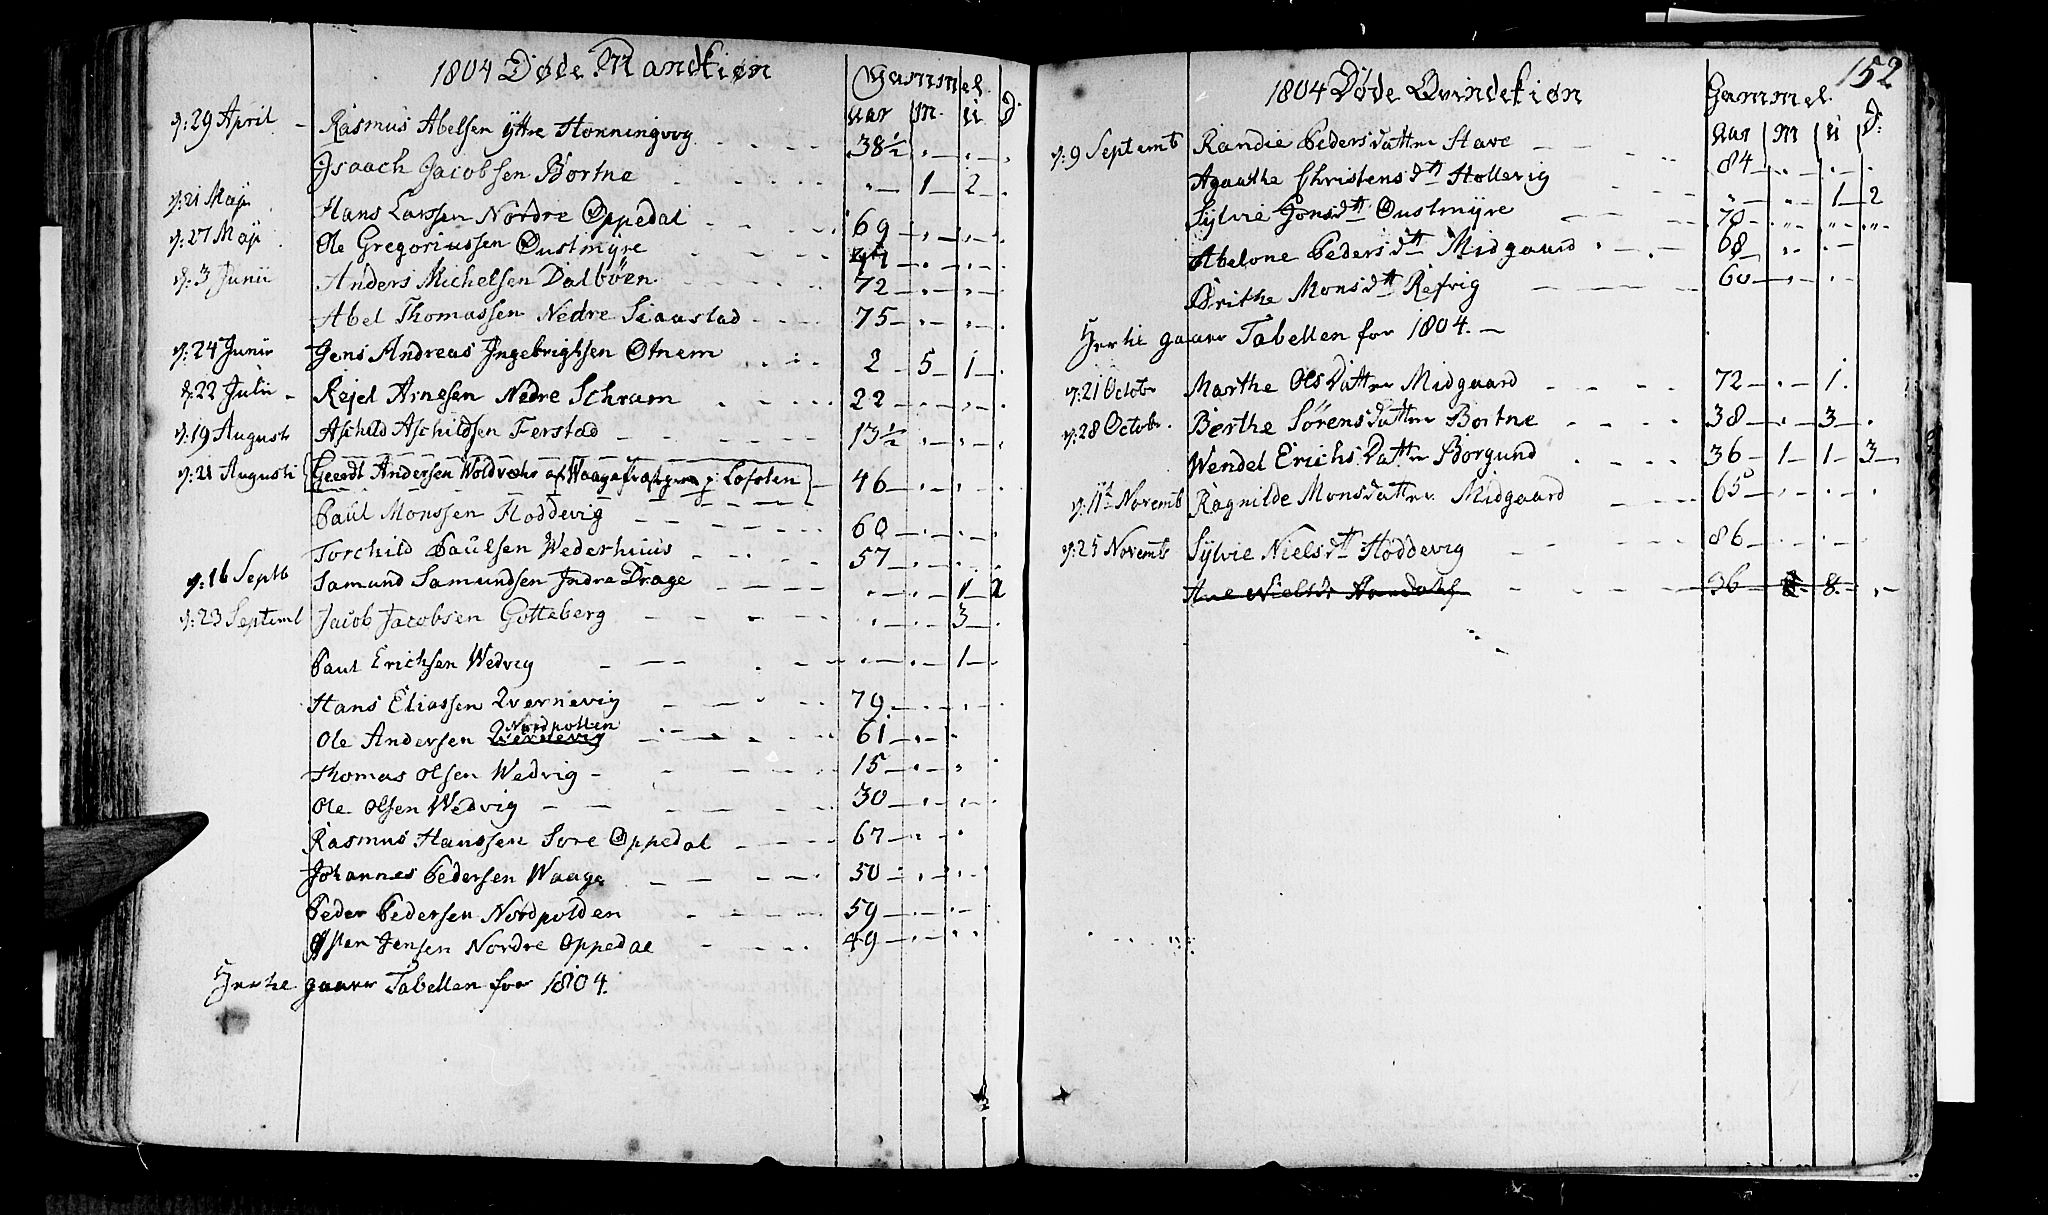 1804 Døde Mandkiøn
Gammel.
Aar M. U. D.
d: 29 April - Rasmus Abelsen Yttre Honningvog 38½
Isaach Jacobsen Bortne 1 2
d: 21 Maji Hans Larssen Nordre Oppedal 69
d: 27 Maji Ole Gregoriussen Oustmyre
d: 3 Junii Anders Michelsen Dalbøen 72
Abel Thomassen Nedre Siaastad 75
d: 24 Junii Jens Andreas Ingebrigtsen Otnem 2 5 1
d: 22 Julii - Kejel Arnesen Nedre Schram 22
d: 19 Augusti Aschild Aschildsen Ferstad 13½
d: 21 Augusti Geerdt Andersen Woldvæhr af i Lofoten 46
Paul Monssen Hoddevig 60
Torchild Paulsen Wederhuus 57
d: 16 Septb Samund Samundsen Indre Drage 1 2
d: 23 Septemb Jacob Jacobsen Gotteberg 3
Paul Erichsen Wedvig 1
Hans Eliassen Qvernevig 79
Nordpollen
Ole Andersen Qvernevig 61
Thomas Olsen Wedvig - 15
Ole Olsen Wedvig 30
Rasmus Hanssen Søre Oppedal 67
Johannes Pedersen Waage 50
Peder Pedersen Nordpolden 59
Østen Jensen Nordre Oppedal 49
Herhe gaaer Tabellen for 1804.
152
1804 Døde Qvindekiøn
Gammel.
Aar M U D:
d: 9 Septemb Randie Peders Datter Stave 84
Agaathe Christensdtt Hollevig 1 2
Sÿlvie Jonsdtt Oustmyre 70
Abelone Pedersdtt Midgaard 68
Brithe Monsdtt Refvig 60
Herhe gaaer Tabellen for 1804. -
d: 21 Octobr Marthe Ols Datter Midgaard 72 1
d: 28 Octobr. Berthe Sørens Datter Bortne 38 3
Wendel Erichs Datter Borgund 36 1 1 3
d: 11te Novemb Ragnilde Monsdatter Midgaard 65
d: 25 Novemb Sÿlvie Nielsdtt Hoddevig 86
36 8